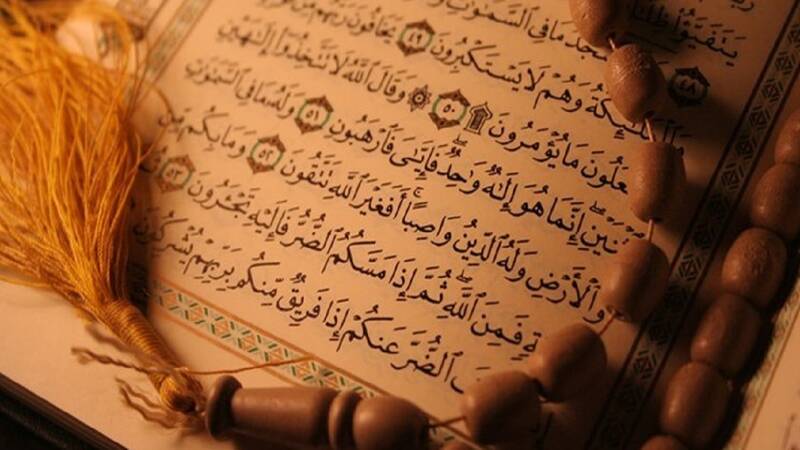 يَتَفَيَّؤُا۟
٤٨ يَسْجُدُ مَا فِى ٱلسَّمَٰوَٰتِ
وَٱلْمَلَٰٓئِكَةُ وَهُمْ لَا يَسْتَكْبِرُونَ ٤٩ يَخَافُونَ رَبَّهُم مِّن
مَا يُؤْمَرُونَ ٥٠ ۞ وَقَالَ ٱللَّهُ لَا تَتَّخِذُوٓا۟ إِلَٰهَيْنِ
إِنَّمَا هُوَ إِلَٰهٌ وَٰحِدٌ فَإِيَّٰىَ فَٱرْهَبُونِ ٥١ وَلَهُۥ مَا فِى ٱلسَّمَٰوَٰتِ
وَٱلْأَرْضِ وَلَهُ ٱلدِّينُ وَاصِبًا ۚ أَفَغَيْرَ ٱللَّهِ تَتَّقُونَ ٥٢ وَمَا بِكُم مِّن
فَمِنَ ٱللَّهِ ۖ ثُمَّ إِذَا مَسَّكُمُ ٱلضُّرُّ فَإِلَيْهِ تَجْـَٔرُونَ ٥٣
ٱلضُّرَّ عَنكُمْ إِذَا فَرِيقٌ مِّنكُم بِرَبِّهِمْ يُشْرِكُونَ